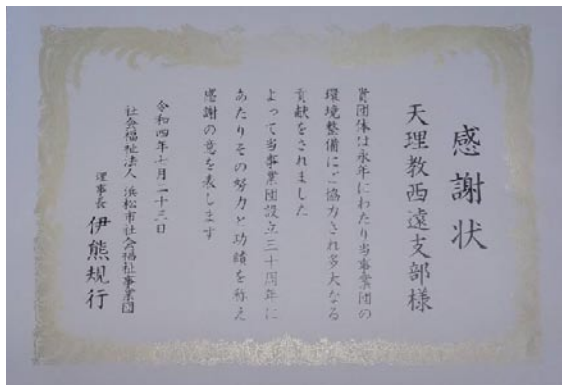 感謝状
天理教西遠支部様
貴団体は永年にわたり当事業団の
環境整備にご協力され多大なる
貢献をされました
よって当事業団設立三十周年に
あたりその努力と功績を称え
感謝の意を表します
令和四年七月二十三日
社会福祉法人 浜松市社会福祉事業団
理事長 伊熊規行